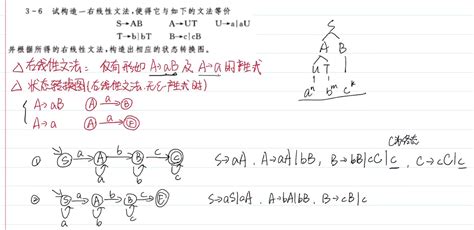 3-6 试构造一右线性文法,使得它与如下的文法等价
S→AB A→UT U→a|aU
T→b|bT B→c|cB
并根据所得的右线性文法,构造出相应的状态转换图。
S
A B
U T
aⁿ bᵐ cᵏ
△ 右线性文法: 仅有形如 A→aB 及 A→a 的产生式
△ 状态转换图(右线性文法,无ε-产生式时)
A→aB Ⓐ a Ⓑ
A→a Ⓐ a Ⓕ
C为终态
① S a A b B c C a b c S→aA, A→aA|bB, B→bB|cC|c, C→cC|c
② S a A b B c F a b c S→aS|aA, A→bA|bB, B→cB|c